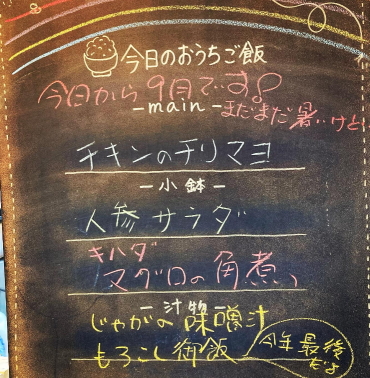 今日のおうちご飯
今日から9月です
-main-
まだまだ暑いけど
チキンのチリマヨ
-小鉢-
人参サラダ
キハダ
マグロの角煮、
-汁物-
じゃがの味噌汁
もろこし御飯
今年最後
だよ